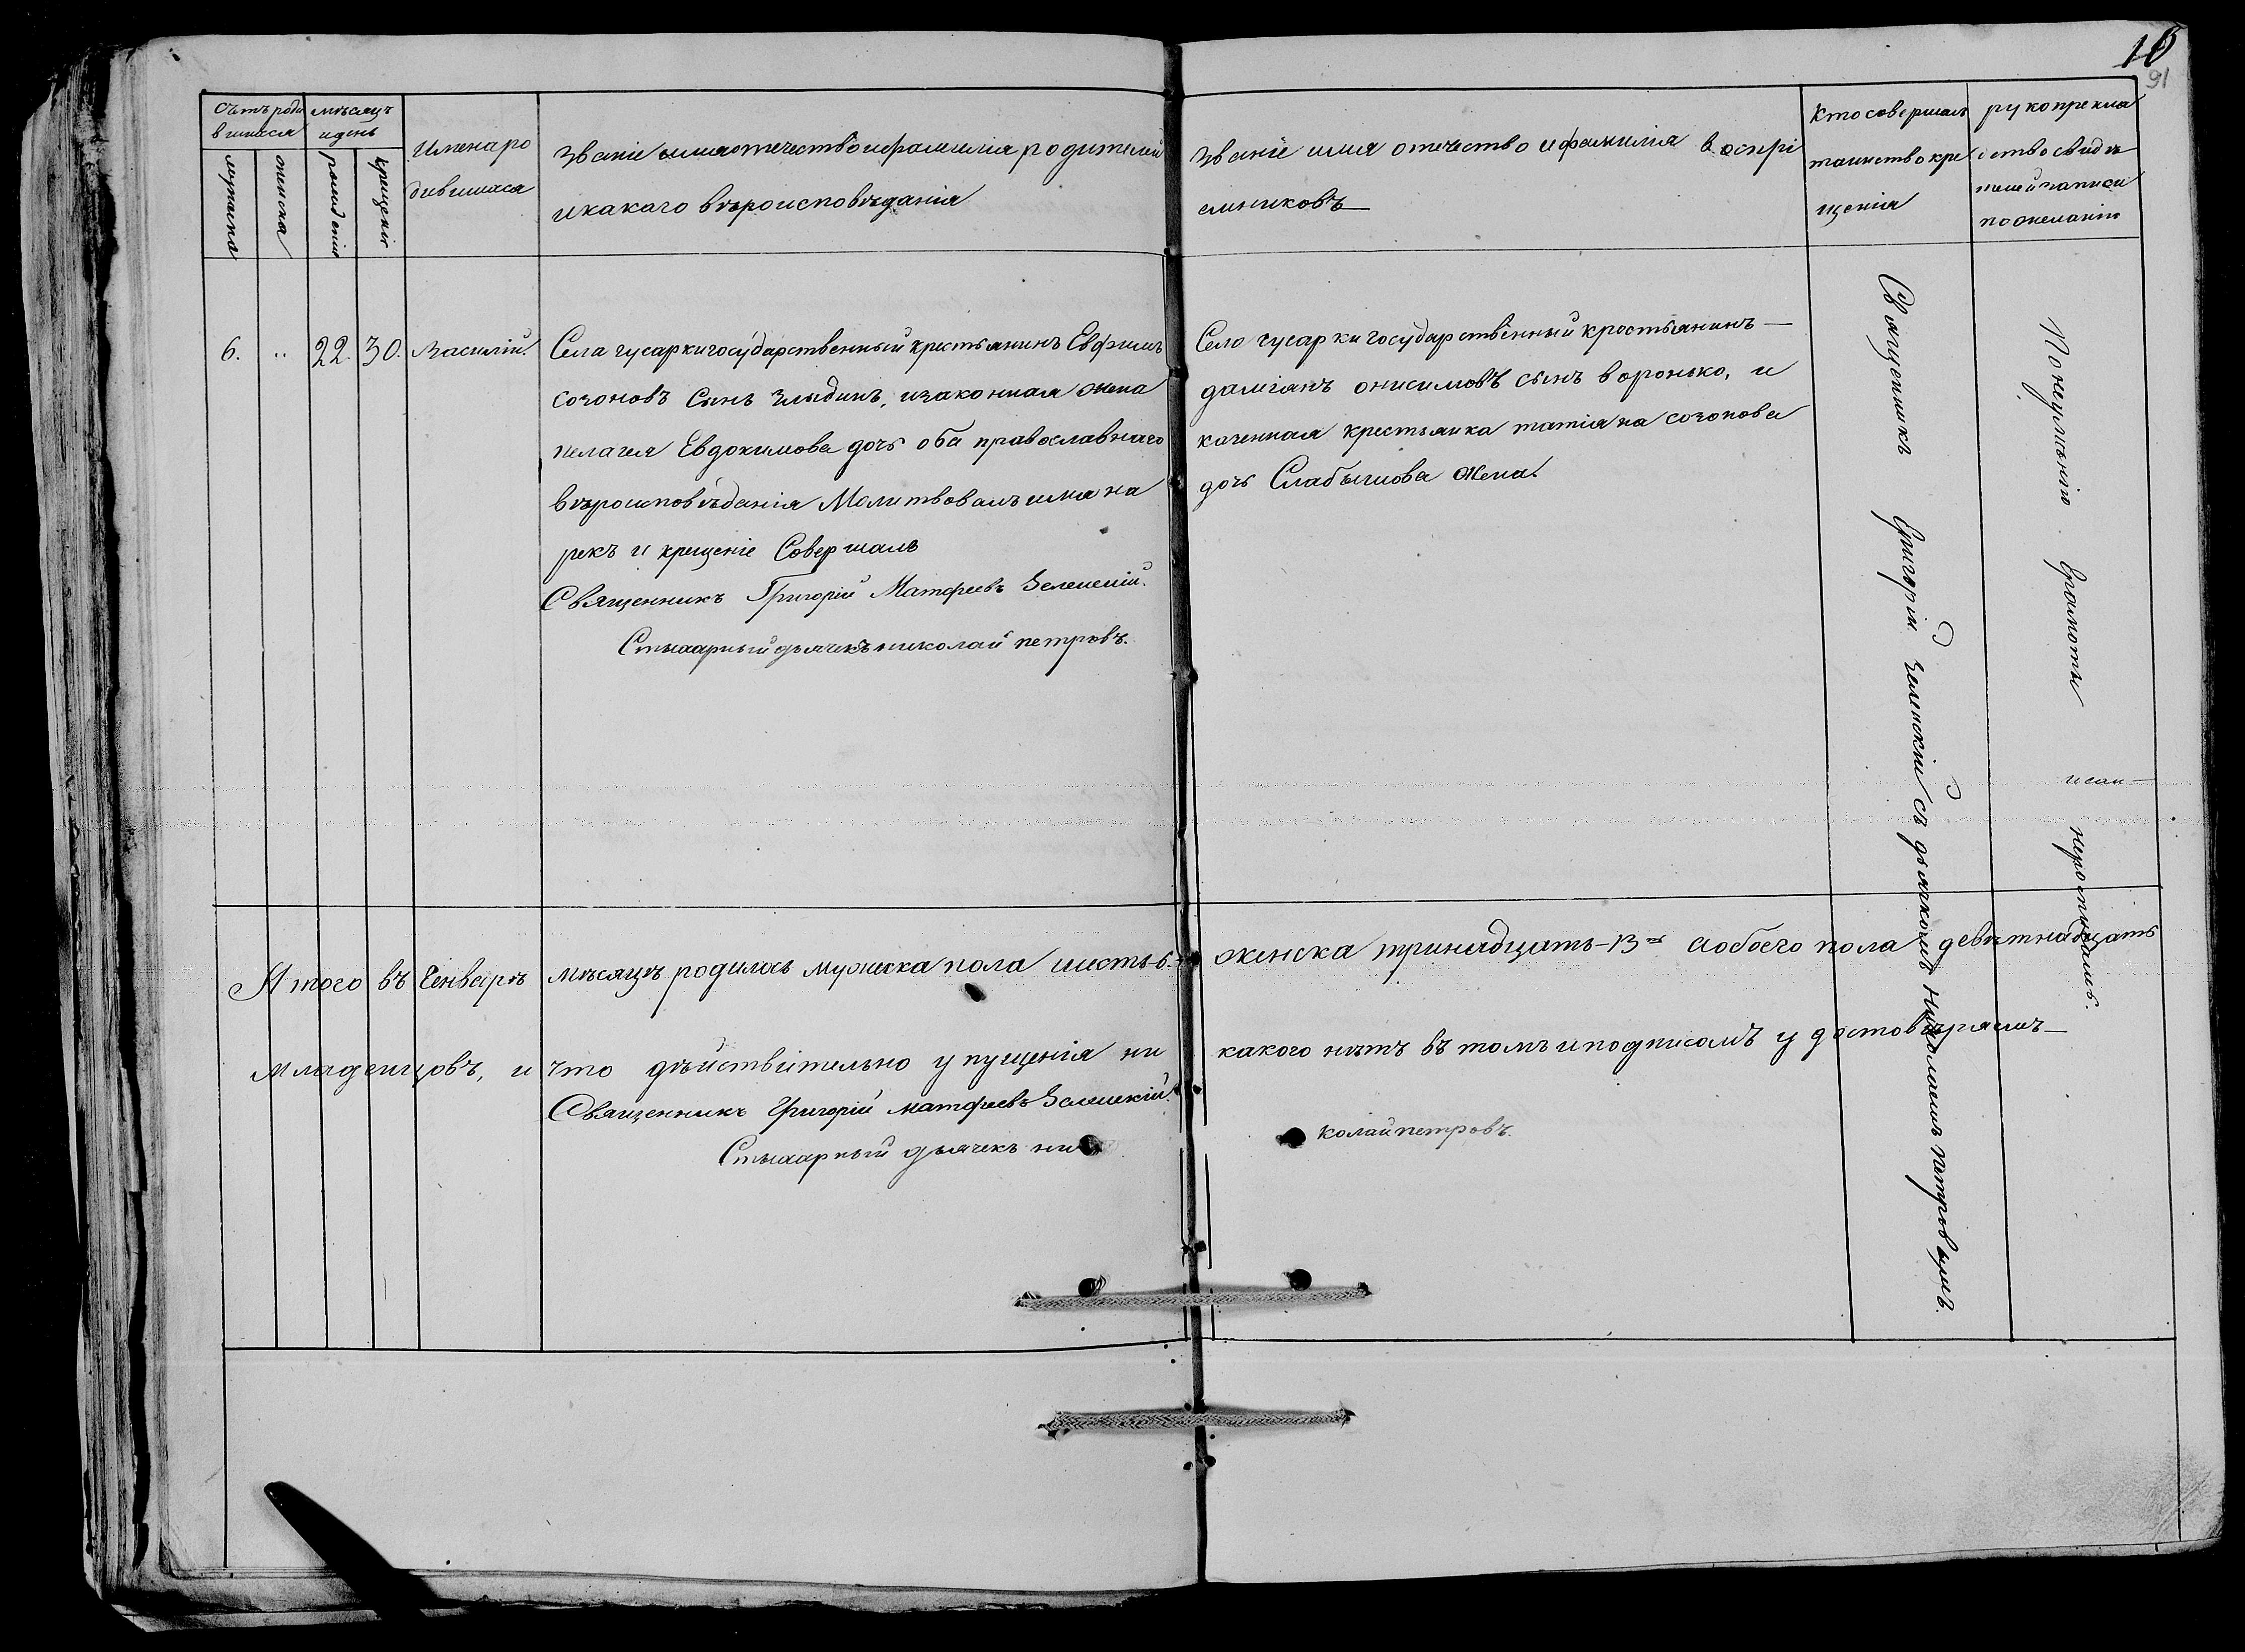 10
91
Счетъ роди
вшихся
мѣсяцъ
и день
мужеска
женска
рожденія
крещенія
Имена ро
дившихся
Званіе имя отечество и фамилія родителей
и какаго вѣроисповѣданія
Званіе имя отечество и фамилія воспрі
емниковъ
Кто совершалъ
таинство кре
щенія
рукоприкла
дство свидѣ
телей записи
по желанію
6. " 22. 30. Василій.
Села гусарки государственный крестьянинъ Евфимъ
созоновъ Сынъ Злыдинъ, и законная жена
пелагея Евдокимова дочь оба православнаго
вѣроисповѣданія Молитвовалъ имя на
рекъ и крещеніе Совершалъ
Священникъ Григорій Матфеевъ Зеленскій.
Стихарный дьячекъ николай петровъ.
Село гусарки государственный крестьянинъ —
даміанъ онисимовъ сынъ воронько, и
казенная крестьянка татіяна созонова
дочь Слабышова жена.
Священникъ Григорій Зеленскій съ дьячкомъ Николаемъ петровымъ.
По неумѣнію Грамоты
исам —
неро
А того въ Генварѣ мѣсяцѣ родилось мужеска пола шесть-6. женска тринадцать-13 а обоего пола девятнадцать
младенцовъ, и что дѣйствительно упущенія ни какого нѣтъ въ томъ и подписомъ удостовѣряемъ —
Священникъ Григорій матфеевъ Зеленскій.
Стихарный дьячекъ ни колай петровъ.